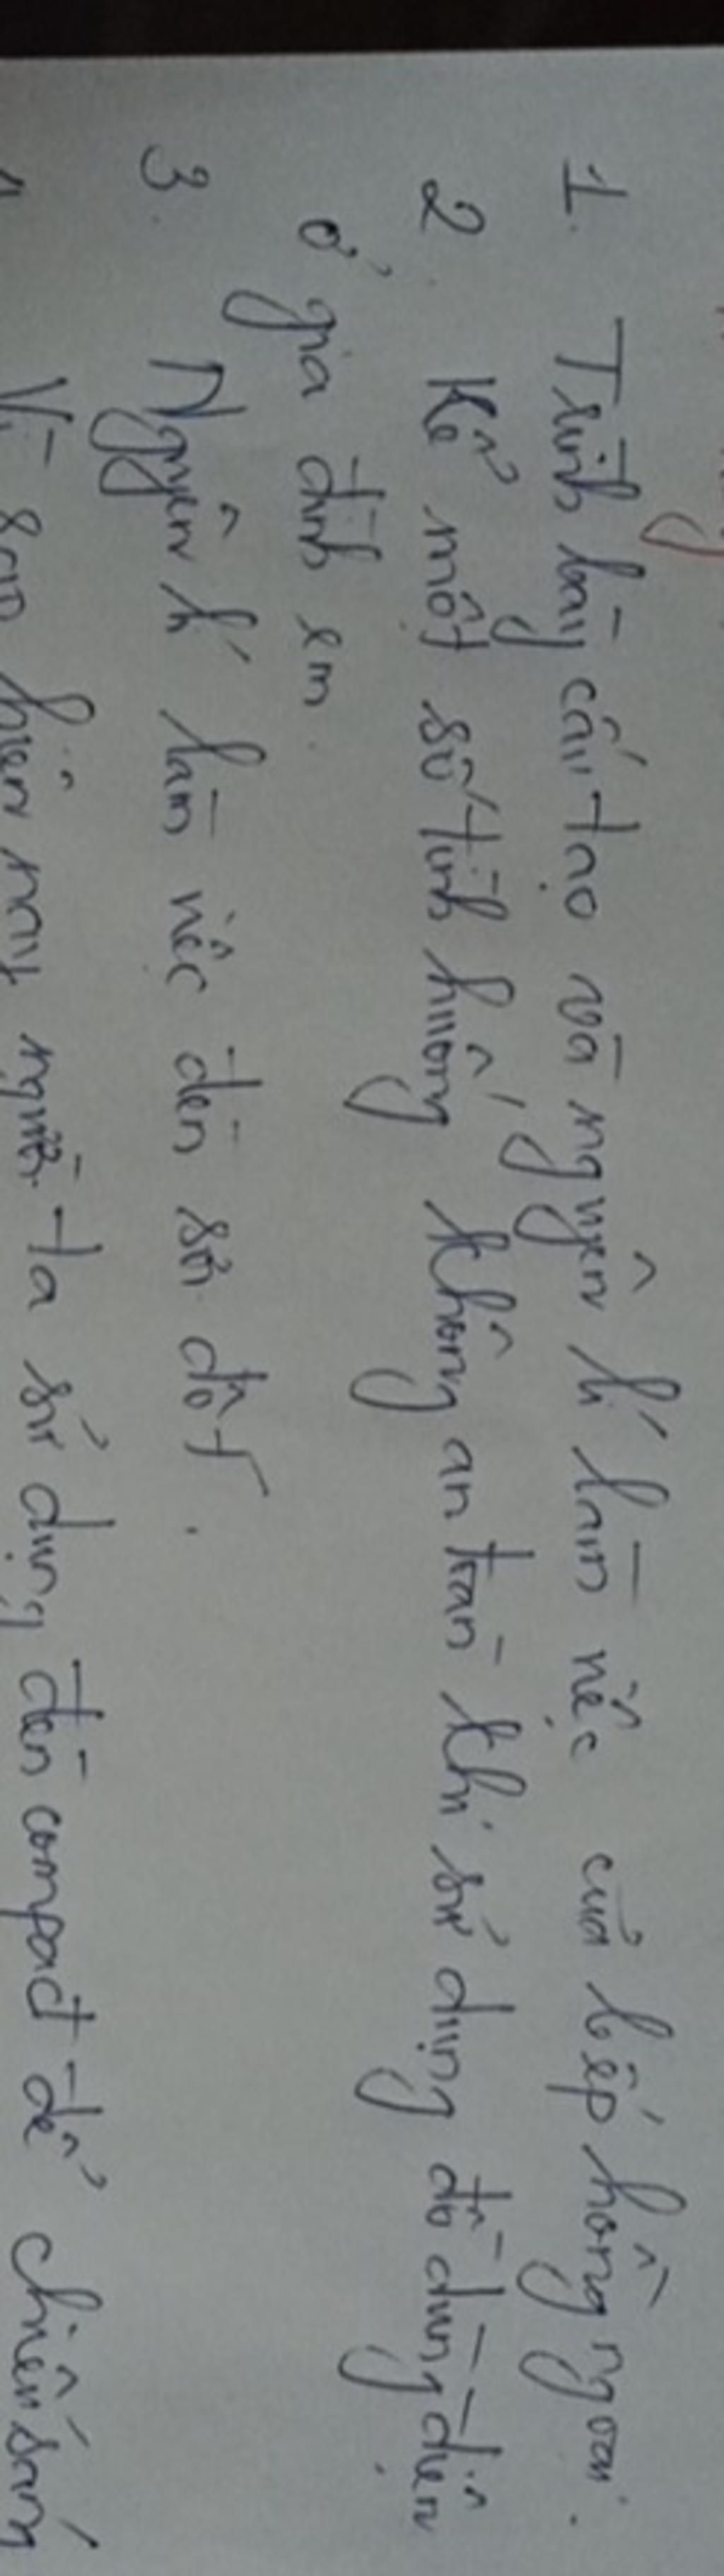 1. Trình bày cấu tạo và nguyên lí làm việc của bếp hồng ngoại.
2. Kể một số tình huống không an toàn khi sử dụng đồ dùng điện
ở gia đình em.
3. Nguyên lí làm việc đèn sợi đốt.
Vì sao hiện nay người ta sử dụng đèn compact để chiếu sáng